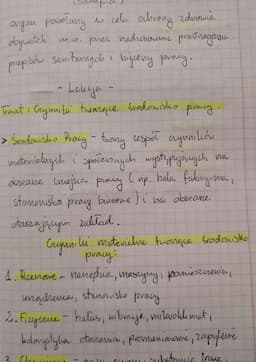 (Sanepid)
organ powołany w celu ochrony zdrowia
obywateli m.in. przez nadzorowanie przestrzegania
przepisów sanitarnych i higieny pracy.
- Lekcja -
Temat: Czynniki tworzące środowisko pracy.
> Środowisko Pracy - tworzy zespół czynników
materialnych i społecznych występujących na
obszarze miejsca pracy (np. hala fabryczna,
stanowisko pracy biurowe) i na obszarze
otaczającym zakład.
Czynniki materialne tworzące środowisko
pracy:
1. Rzeczowe - narzędzia, maszyny, pomieszczenia,
urządzenia, stanowisko pracy
2. Fizyczne - hałas, wibracje, mikroklimat,
kolorystyka otoczenia, promieniowanie, zapylenie
3.